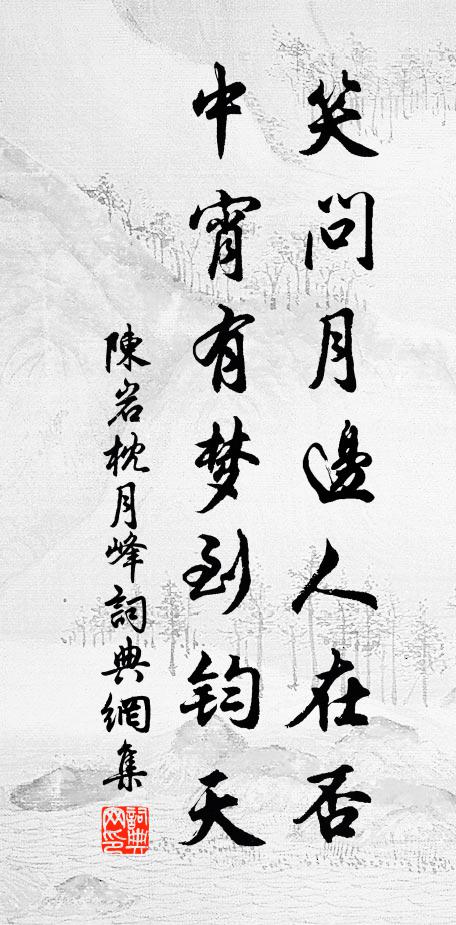 笑问月邊人在否
中宵有梦到钧天
陳岩枕月峰詞典網集
詞典网印